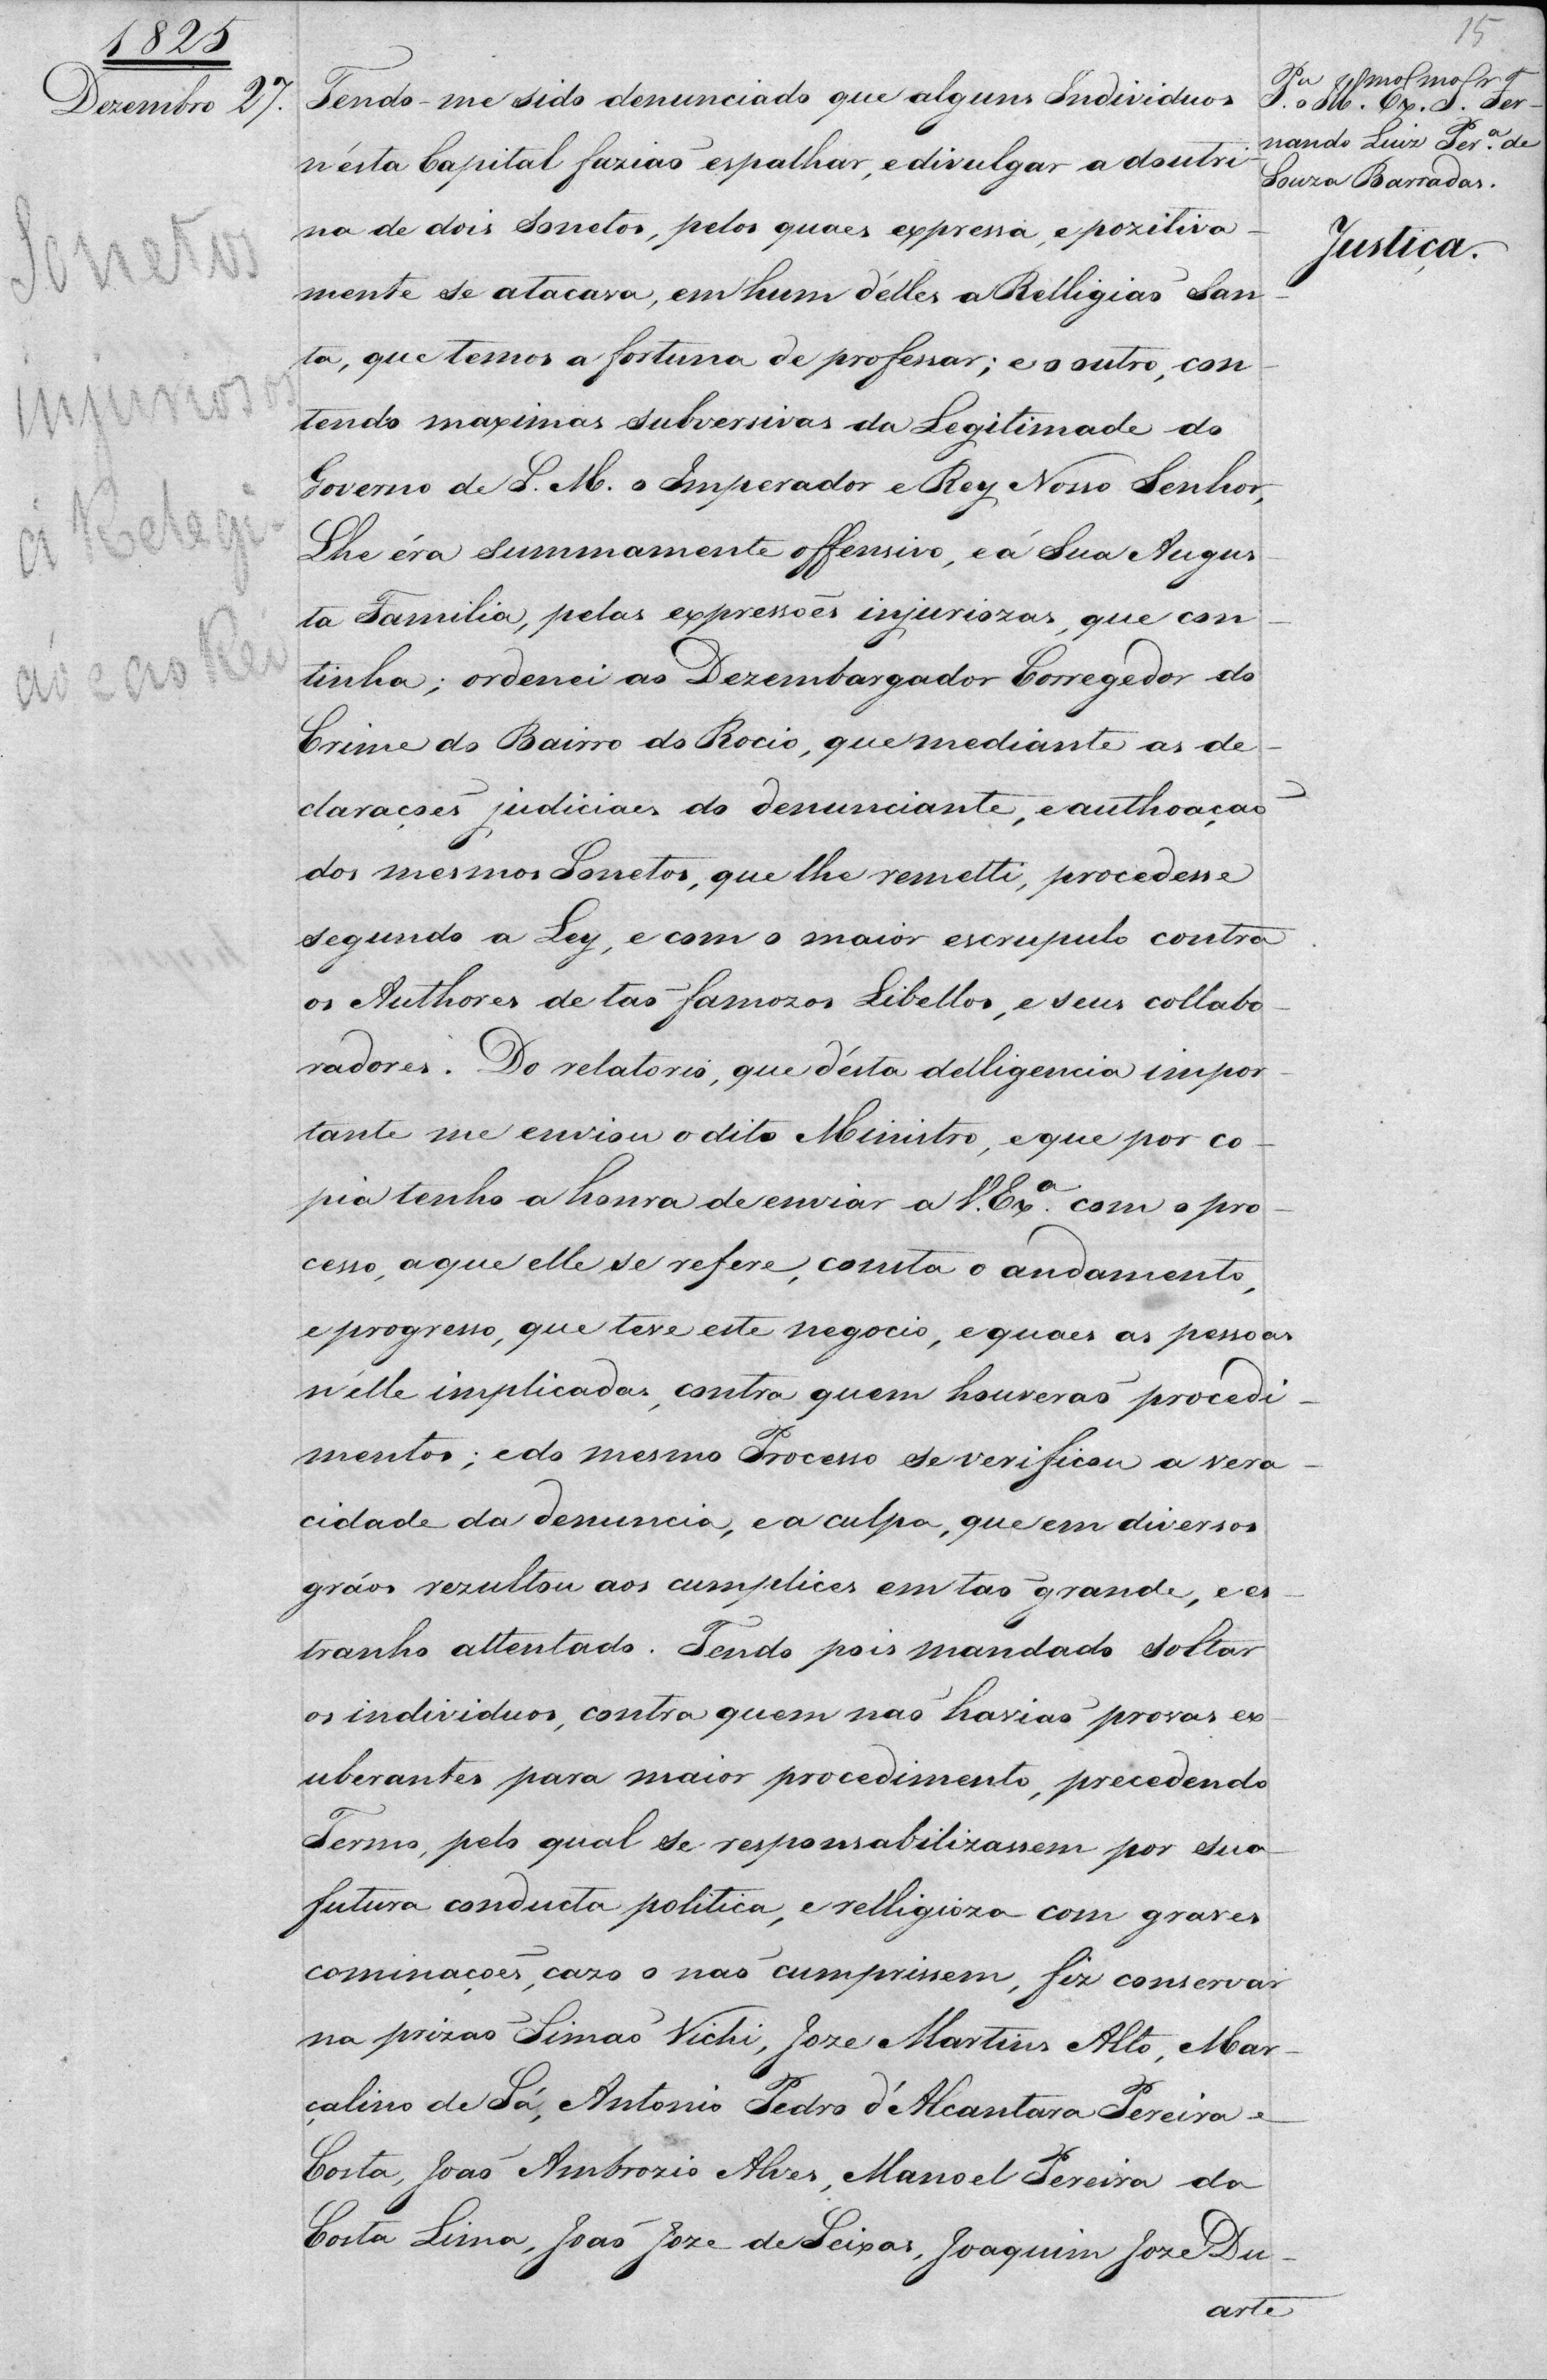 15
1825
Dezembro 27.
Pa o Illmo Exmo Snr Fer-
nando Luiz Per.a de
Souza Barradas.
Justiça.
Sonetos
injuriosos
á Relegi-
ão e ao Rei
Tendo-me sido denunciado que alguns Individuos
n'ésta Capital faziaõ espalhar, e divulgar a doutri-
na de dois Sonetos, pelos quaes expressa, e pozitiva-
mente se atacava, em hum délles a Relligiaõ San-
ta, que temos a fortuna de professar; e o outro, con-
tendo maximas subversivas da Legitimade do
Governo de S. M. o Imperador e Rey Nosso Senhor,
Lhe éra summamente offensivo, e á Sua Augus-
ta Familia, pelas expressoẽs injuriozas, que con-
tinha; ordenei ao Dezembargador Corregedor do
Crime do Bairro do Rocio, que mediante as de-
claraçoẽs judiciaes do denunciante, e authoaçaõ
dos mesmos Sonetos, que lhe remetti, procedesse
segundo a Ley, e com o maior escrupulo contra
os Authores de taõ famozos Libellos, e seus collabo-
radores. Do relatorio, que d'ésta delligencia impor-
tante me enviou o dito Ministro, e que por co-
pia tenho a honra de enviar a V. Ex.a com o pro-
cesso, a que elle se refere, consta o andamento,
e progresso, que teve este negocio, e quaes as pessoas
n'élle implicadas, contra quem houveraõ procedi-
mentos; e do mesmo Processo se verificou a vera-
cidade da denuncia, e a culpa, que em diversos
gráos rezultou aos cumplices em taõ grande, e es-
tranho attentado. Tendo pois mandado soltar
os individuos, contra quem naõ haviaõ provas ex-
uberantes para maior procedimento, precedendo
Termo, pelo qual se responsabilizassem por sua
futura conducta politica, e relligioza com graves
cominaçoẽs, cazo o naõ cumprissem, fiz conservar
na prizaõ Simaõ Vichi, Joze Martins Alto, Mar-
çalino de Sá, Antonio Pedro d'Alcantara Pereira e
Costa, Joaõ Ambrozio Alves, Manoel Pereira da
Costa Lima, Joaõ Joze de Seixas, Joaquim Joze Du-
arte